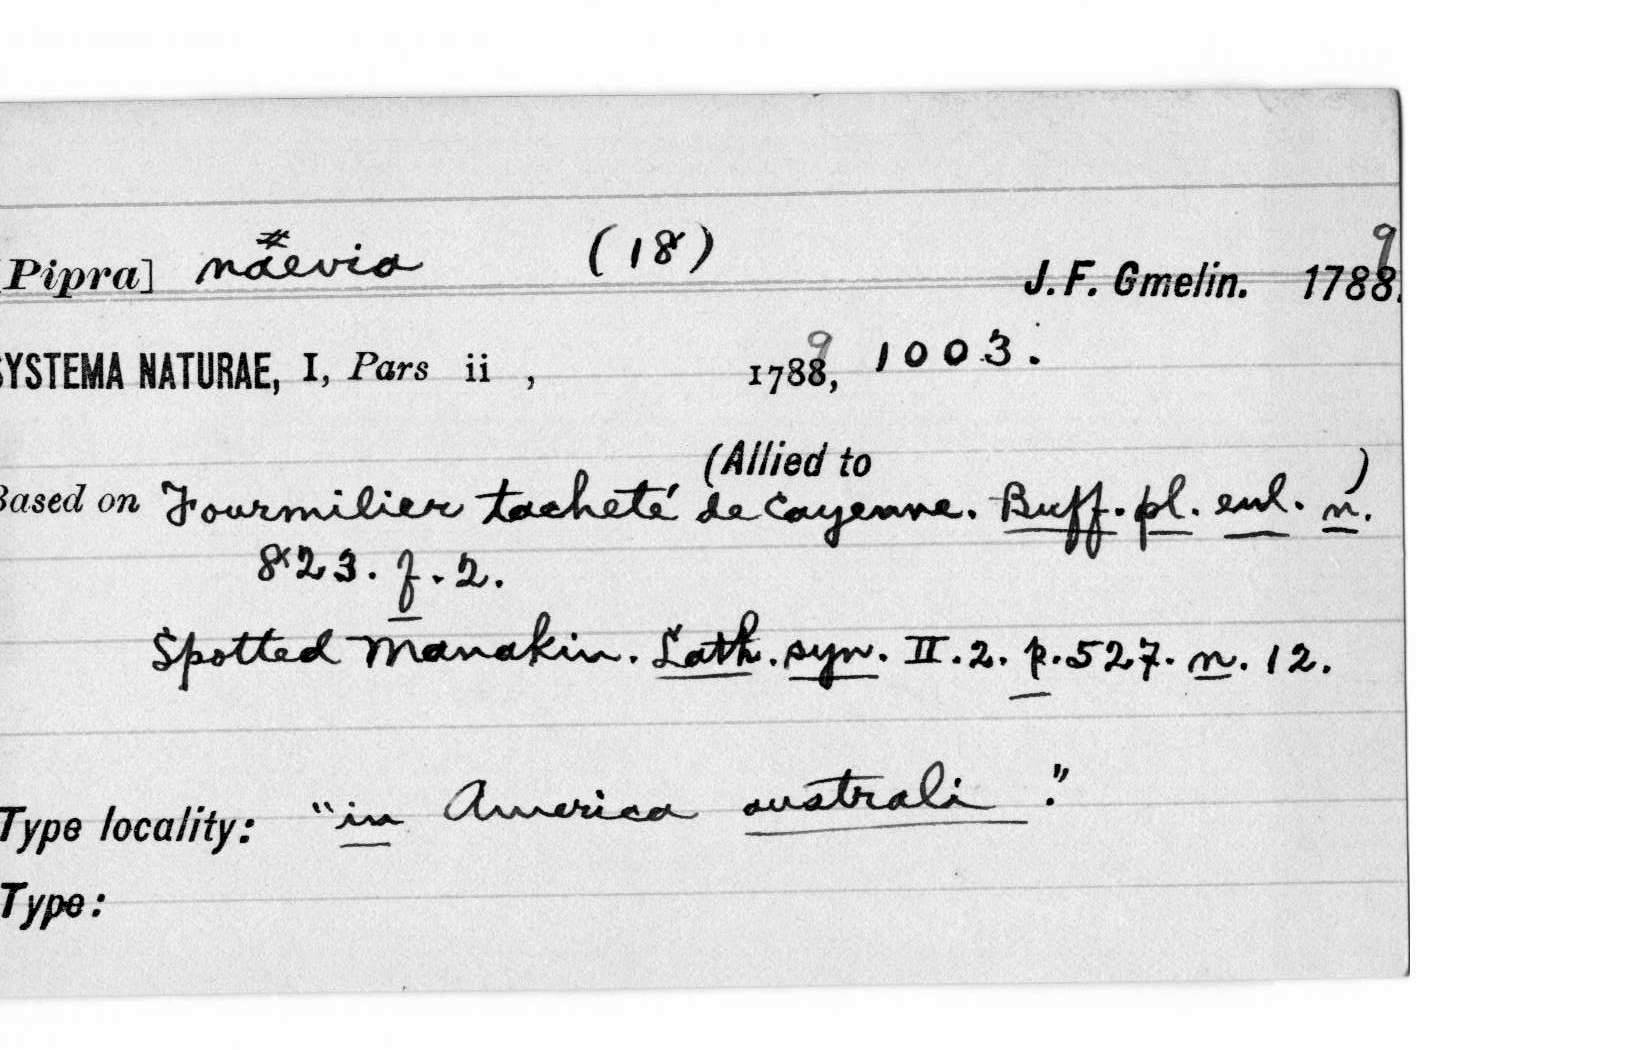 [Pipra] naevia # (18) J. F. Gmelin. 1788. 9
SYSTEMA NATURAE, I, Pars ii , 1788, 9 1003.
(Allied to
Based on Fourmilier tacheté de Cayenne. Buff. pl. enl. n. )
823. f. 2.
Spotted Manakin. Lath. syn. II. 2. p. 527. n. 12.
Type locality: "in America australi."
Type: